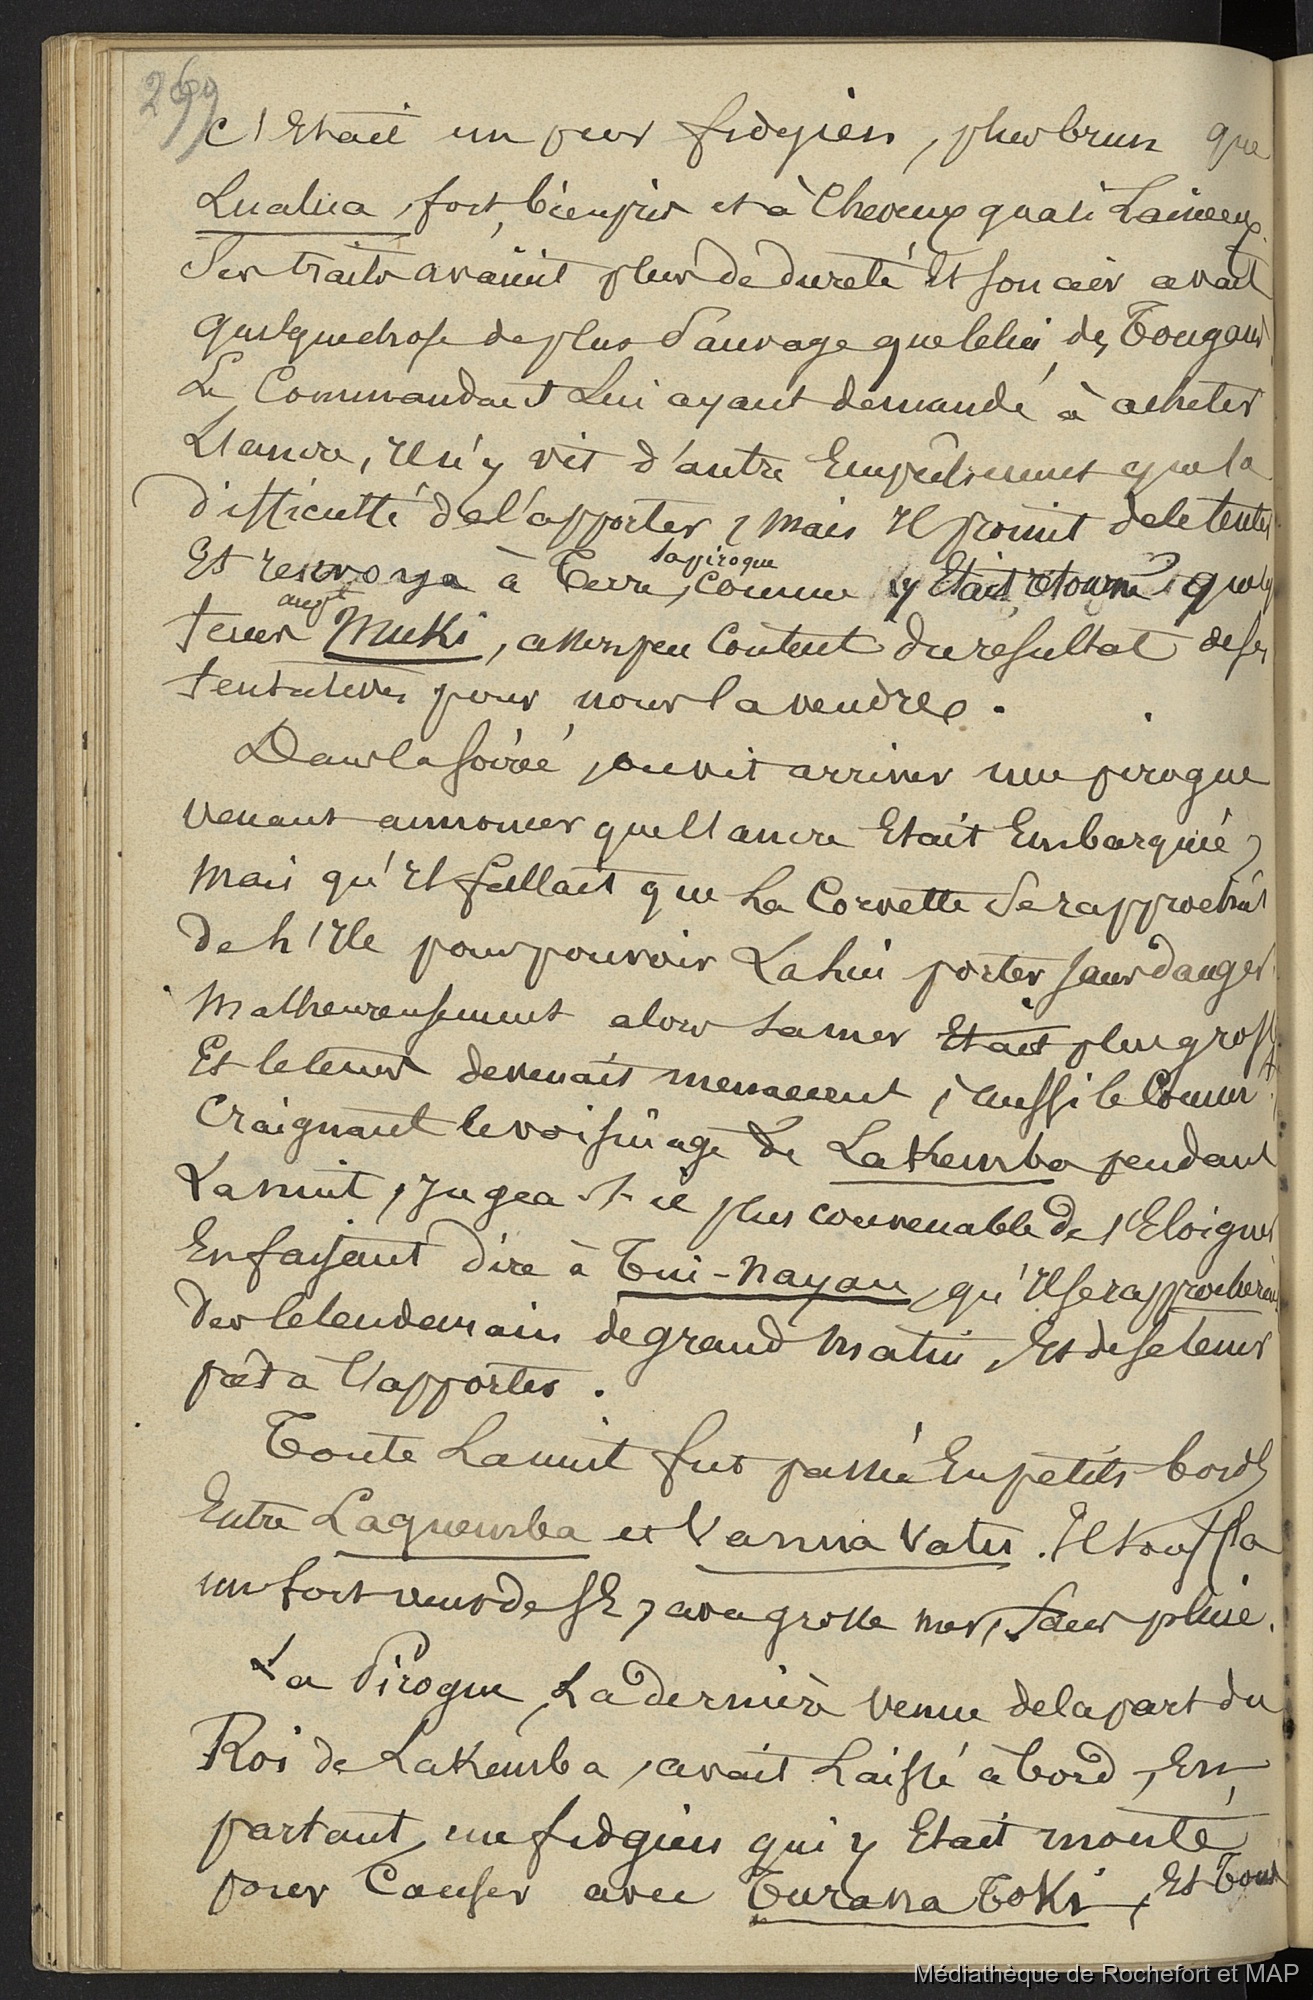 269
C'Etait un pur fidgien, plus brun que
Lualua, fort bien pris et à Cheveux quasi Laineux.
Ses traits avaient plus de dureté Et son air avait
quelque chose de plus Sauvage que celui des Tongans.
Le Commandant Lui ayant demandé à acheter
L'ancre, Il n'y vit d'autre Empêchement que la
difficulté de l'apporter, mais Il promit de le tenter
Et renvoya à Terre sa pirogue, comme y Etait retourné
tenur auft Muki, assez peu Content du resultat de ses
tentatives pour nous la vendre.
Dans la soirée, on vit arriver une pirogue
venant annoncer que l'ancre Etait Embarquée,
mais qu'Il fallait que La Corvette Se rapprochât
de L'Ile pour pouvoir La lui porter sans danger.
Malheureusement alors La mer Etait plus grosse
Et le tems devenait menacent, aussi le Comm.t
Craignant le voisinage de Lakemba pendant
La nuit, Jugea-t-il plus convenable de s'Eloigner
En faisant dire à Tui-Nayau, qu'Il se rapprocherait
Des le lendemain de grand Matin, Et de se tenir
prêt à l'apporter.
Toute La nuit fut passée En petits bords
Entre Laquemba et Vanna Vatu. Il Souffla
un fort vent de SE, avec grosse mer, Sans pluie.
La Pirogue, La dernière venue de la part du
Roi de Lakemba, avait Laissé à bord, En
partant, un fidgien qui y Etait monté
pour Causer avec Turana Toki, Et tout
Médiathèque de Rochefort et MAP